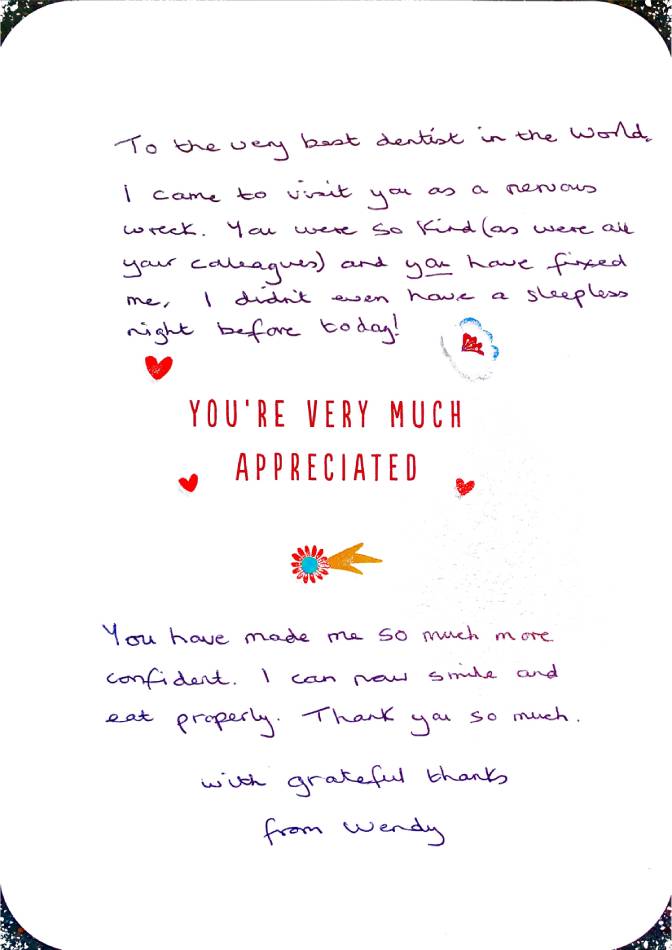 To the very best dentist in the world,
I came to visit you as a nervous
wreck. You were so kind (as were all
your colleagues) and you have fixed
me, I didn't even have a sleepless
night before today!
YOU'RE VERY MUCH
APPRECIATED
You have made me so much more
confident. I can now smile and
eat properly. Thank you so much.
with grateful thanks
from Wendy